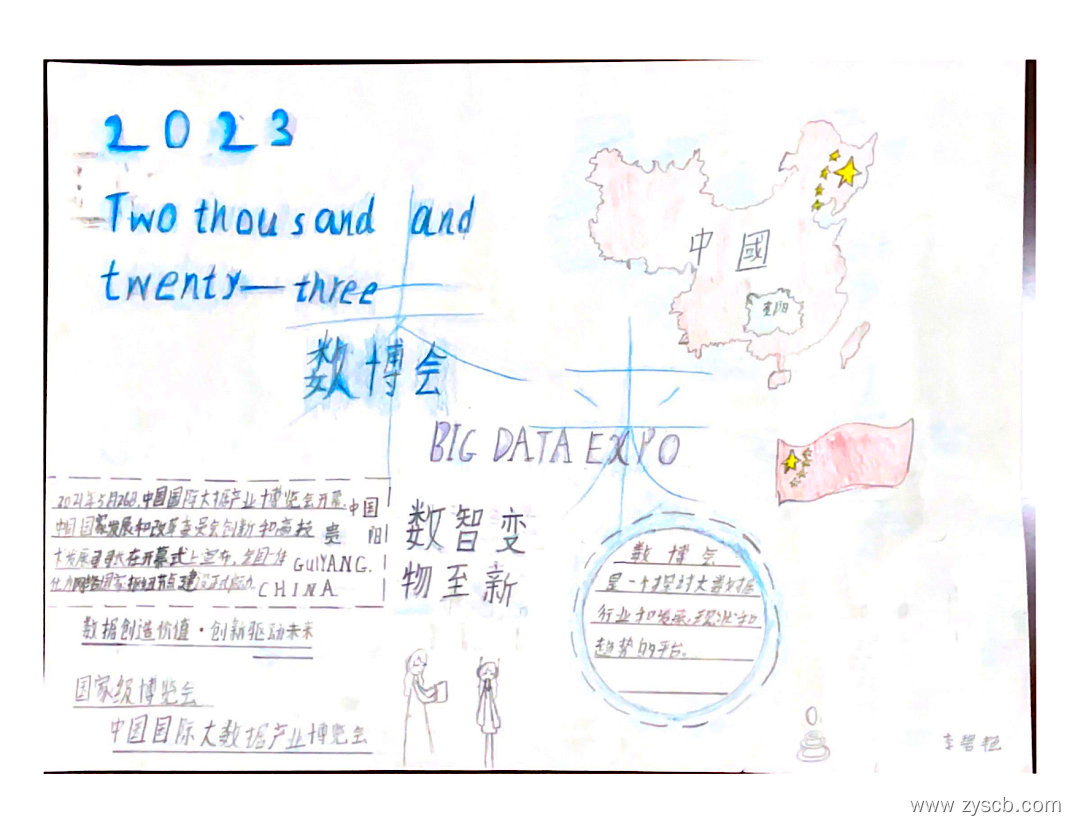 2023
Two thousand and
twenty—three
数博会
中國
贵阳
未来
BIG DATA EXPO
2021年5月26日,中国国际大数据产业博览会开幕,
中国国家发展和改革委员会创新和高技
术发展司司长在开幕式上宣布,全国一体
化算力网络国家枢纽节点建设正式启动.
中国
贵阳
GUIYANG.
CHINA
数智变
物至新
数博会
是一个探讨大数据
行业和发展,现状和
趋势的平台。
数据创造价值·创新驱动未来
国家级博览会
中国国际大数据产业博览会
www.zyscb.com